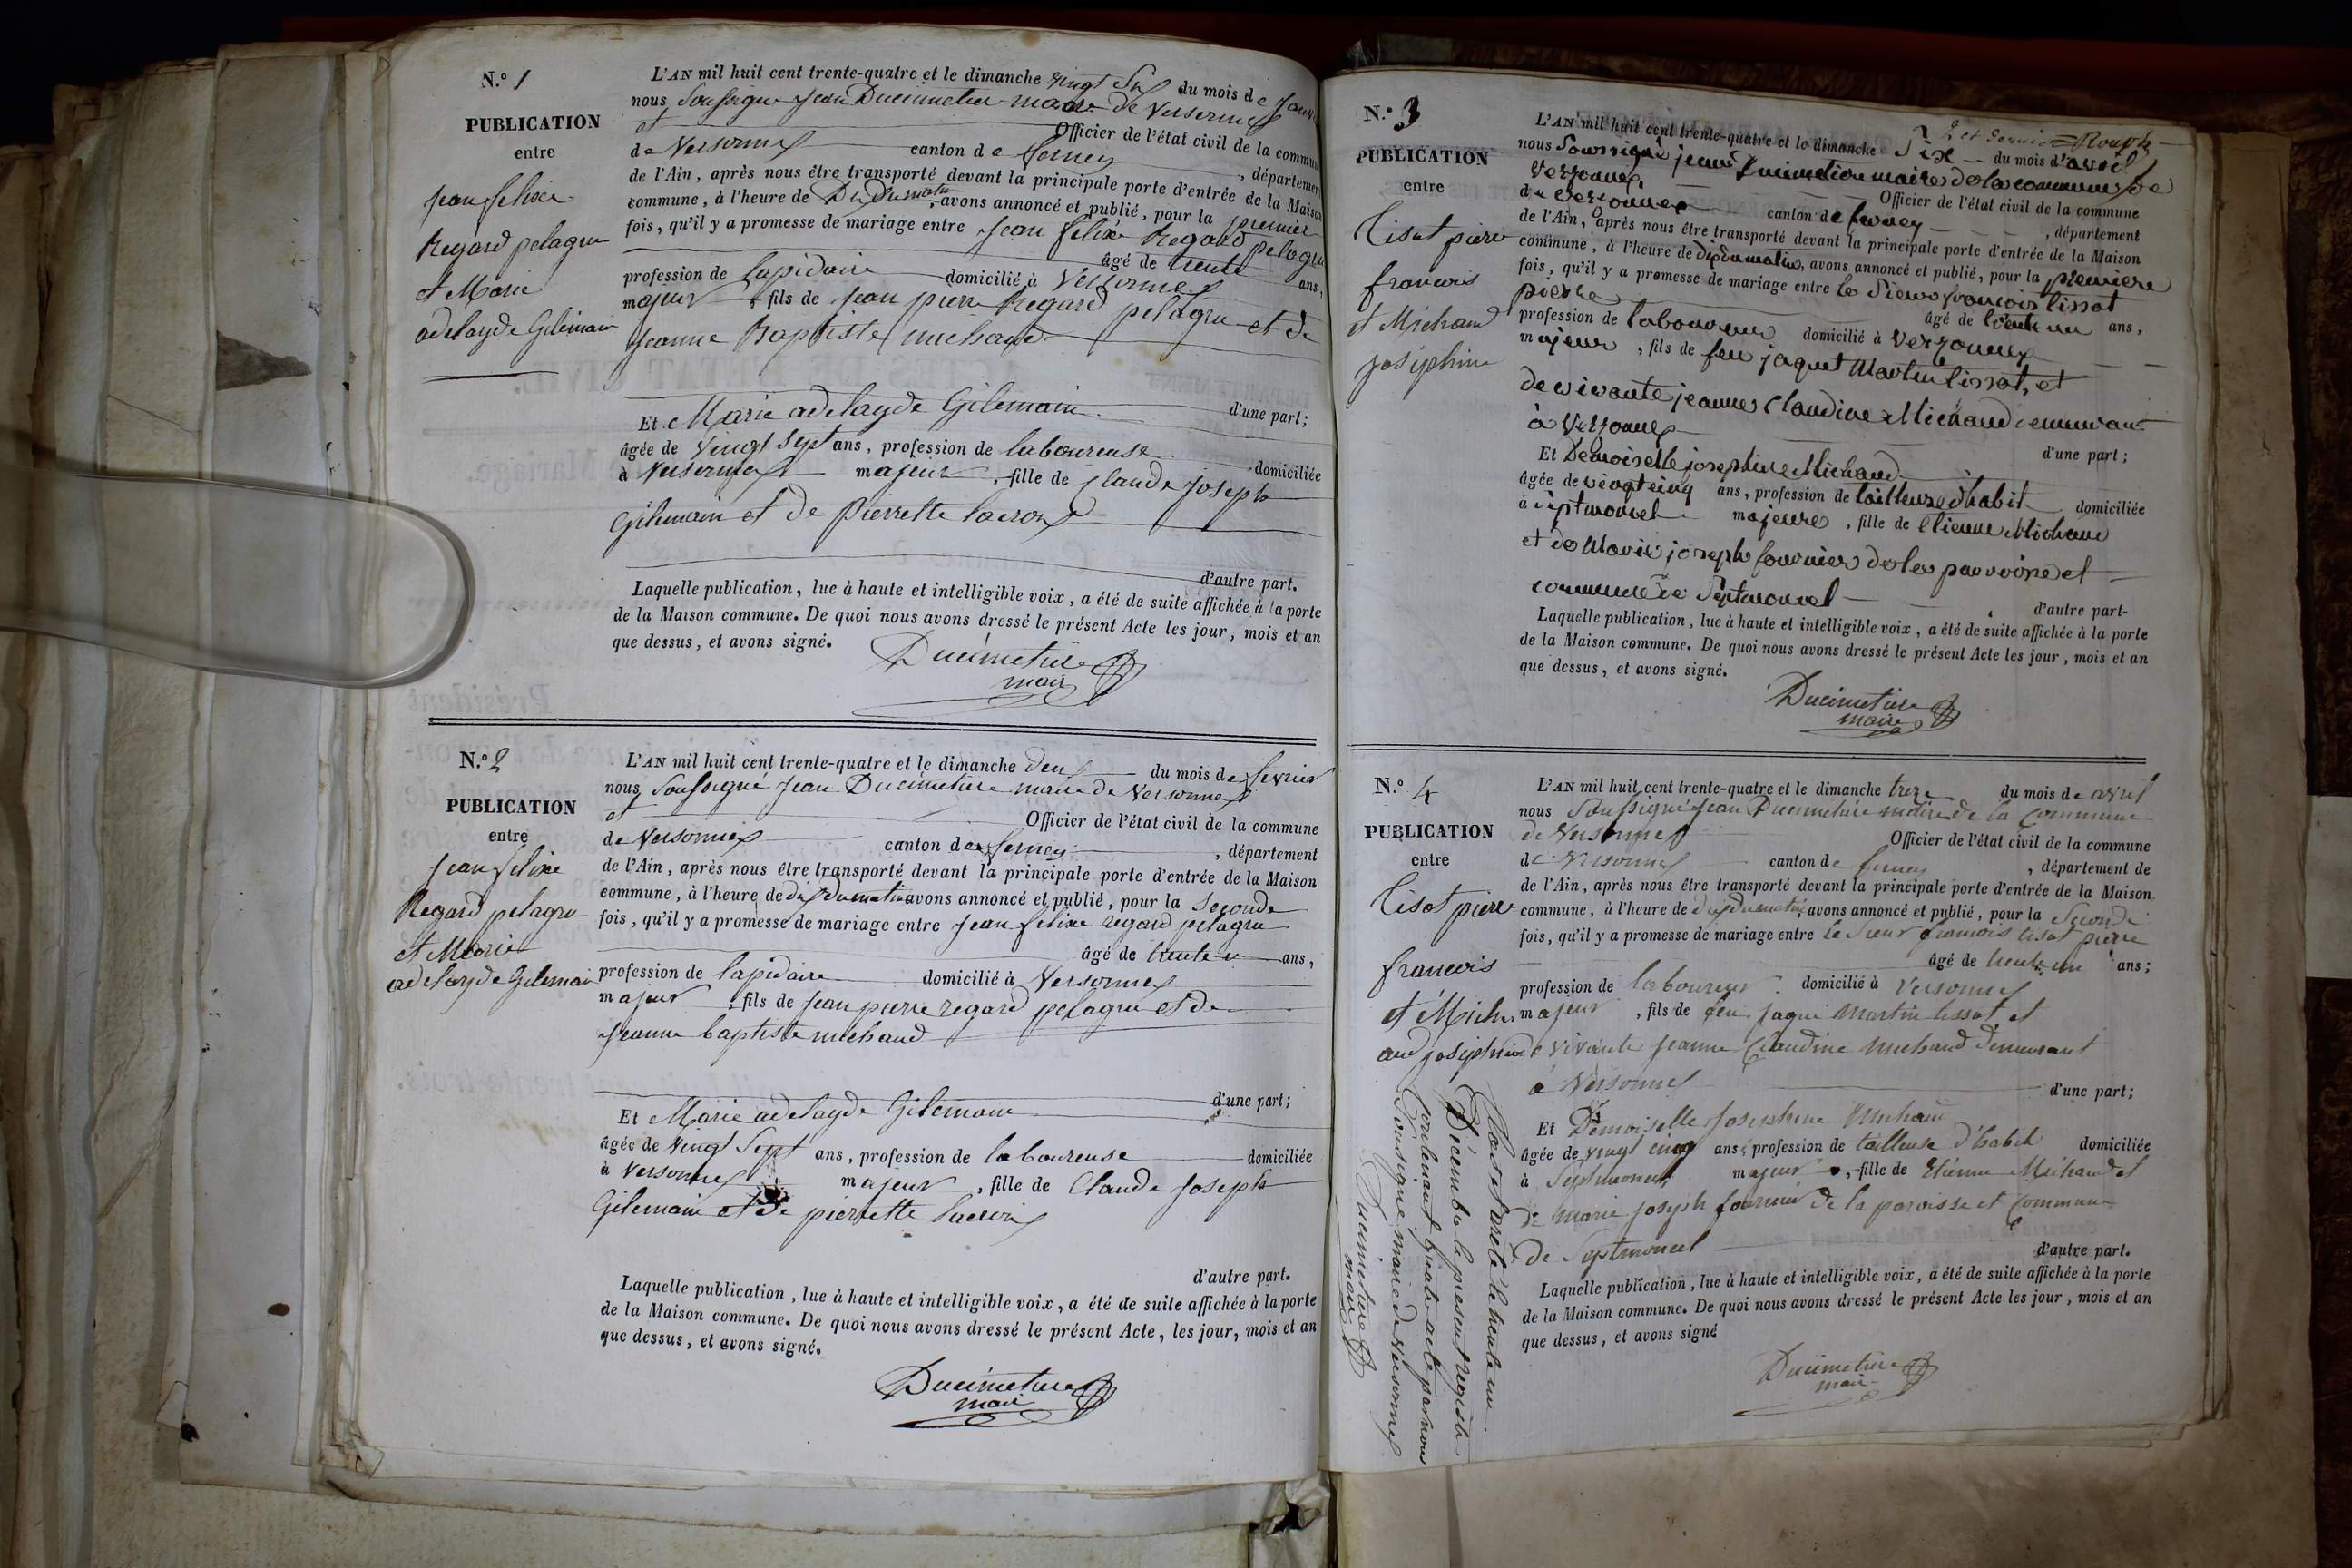 N.º 1
PUBLICATION
entre
Jean felixe
Regard pelagru
et Marie
adelayde Gilemain
L'AN mil huit cent trente-quatre et le dimanche vingt Six du mois de Janvi
nous Soussigne Jean Ducimetiere maire de Versonnex
et Officier de l'état civil de la commun
de Versonnex canton de ferney , départemen
de l'Ain, après nous être transporté devant la principale porte d'entrée de la Maison
commune, à l'heure de Dix du matin, avons annoncé et publié, pour la premier
fois, qu'il y a promesse de mariage entre Jean felixe Regard pelagru
âgé de trente ans,
profession de lapidaire domicilié à Versonnex
majeur , fils de Jean pierre Regard pelagru et de
Jeanne Baptiste michaud
d'une part;
Et Marie adelayde Gilemain
âgée de vingt Sept ans, profession de laboureuse domiciliée
à Versonnex majeur , fille de Claude Joseph
Gilemain et de Pierrette lacroix
d'autre part.
Laquelle publication, lue à haute et intelligible voix, a été de suite affichée à la porte
de la Maison commune. De quoi nous avons dressé le présent Acte les jour, mois et an
que dessus, et avons signé.
Ducimetiere
maire
N.º 2
PUBLICATION
entre
Jean felixe
Regard pelagru
et Marie
adelayde Gilemain
L'AN mil huit cent trente-quatre et le dimanche deux du mois de fevrier
nous Soussigné Jean Ducimetiere maire de Versonnex
et Officier de l'état civil de la commune
de Versonnex canton de ferney , département
de l'Ain, après nous être transporté devant la principale porte d'entrée de la Maison
commune, à l'heure de dix du matin avons annoncé et publié, pour la Seconde
fois, qu'il y a promesse de mariage entre Jean felixe regard pelagru
âgé de trente ans,
profession de lapidaire domicilié à Versonnex
majeur , fils de Jean pierre regard pelagru et de
Jeanne baptiste michaud
d'une part;
Et Marie adelayde Gilemain
âgée de vingt Sept ans, profession de laboureuse domiciliée
à Versonnex majeur , fille de Claude Joseph
Gilemain et de pierrette lacroix
d'autre part.
Laquelle publication, lue à haute et intelligible voix, a été de suite affichée à la porte
de la Maison commune. De quoi nous avons dressé le présent Acte, les jour, mois et an
que dessus, et avons signé.
Ducimetiere
maire
N.º 3
PUBLICATION
entre
Tisot pierre
francois
et Michaud
Josephine
2 et dernier
L'AN mil huit cent trente-quatre et le dimanche Six du mois d'avril
nous Soussigné jean Ducimetiere maire de la commune de
Versonnex Officier de l'état civil de la commune
de Versonnex canton de ferney , département
de l'Ain, après nous être transporté devant la principale porte d'entrée de la Maison
commune, à l'heure de dix du matin, avons annoncé et publié, pour la premiere
fois, qu'il y a promesse de mariage entre le Sieur francois tissot
pierre âgé de trente un ans,
profession de laboureur domicilié à Versonnex
majeur , fils de feu jaquet Martin tissot, et
de vivante jeanne Claudine Michaud demeurant
à Versonnex
d'une part;
Et Demoiselle josephine Michaud
âgée de vingt cinq ans, profession de tailleuse d'habit domiciliée
à Septmoncel majeure , fille de Etienne Michaud
et de Marie joseph fournier de la parroisse et
commune de Septmoncel
d'autre part.
Laquelle publication, lue à haute et intelligible voix, a été de suite affichée à la porte
de la Maison commune. De quoi nous avons dressé le présent Acte les jour, mois et an
que dessus, et avons signé.
Ducimetiere
maire
N.º 4
PUBLICATION
entre
Tisot pierre
francois
et Mich
aud josephine
L'AN mil huit cent trente-quatre et le dimanche treze du mois de avril
nous Soussigné Jean Ducimetiere maire de la Commune
de Versonnex Officier de l'état civil de la commune
de Versonnex canton de ferney , département de
de l'Ain, après nous être transporté devant la principale porte d'entrée de la Maison
commune, à l'heure de dix du matin, avons annoncé et publié, pour la Seconde
fois, qu'il y a promesse de mariage entre le Sieur francois tisot pierre
âgé de trente un ans;
profession de laboureur domicilié à Versonnex
majeur , fils de feu Jaque Martin tissot et
de vivante Jeanne Claudine michaud demeurant
à Versonnex
d'une part;
Et Demoiselle Josephine Michaud
âgée de vingt cinq ans, profession de tailleuse d'habit domiciliée
à Septmoncel majeur , fille de Etienne Michaud et
de Marie joseph fournier de la paroisse et Commune
de Septmoncel
d'autre part.
Laquelle publication, lue à haute et intelligible voix, a été de suite affichée à la porte
de la Maison commune. De quoi nous avons dressé le présent Acte les jour, mois et an
que dessus, et avons signé
Ducimetiere
maire
Clos et arrêté le trente un
Décembre le present registre
contenant quatre acte par nous
Sousigné maire de Versonnex
Ducimetiere
maire